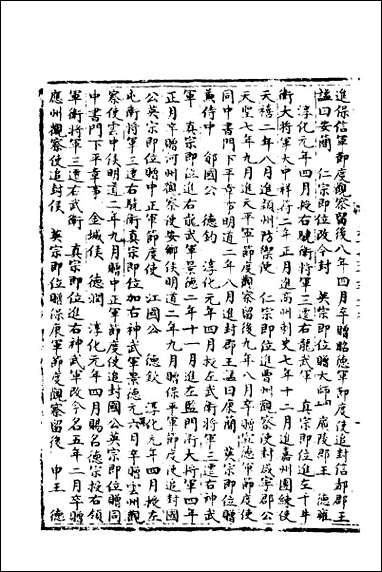 進保信軍節度觀察留後八年四月卒贈昭德軍節度使追封信都郡王
謚曰安簡　仁宗即位改今封　英宗即位贈太師　廣陵郡王　德雍
淳化元年四月授右驍衛將軍三遷右龍武軍　真宗即位進左千牛
衛大將軍大中祥符二年正月進高州刺史七年十二月進嘉州團練使
天禧二年八月進潁州防禦使　仁宗即位進曹州觀察使封咸寧郡公
天聖七年九月進天平軍節度觀察留後九年八月卒贈宣德軍節度使
同中書門下平章事明道二年八月進封郡王謚曰康簡　英宗即位贈
兼侍中　鄃國公　德鈞　淳化元年四月授左武衛將軍三遷右神武
軍　真宗即位進右龍武軍景德二年十一月進左監門衛大將軍四年
正月卒贈河州觀察使安鄉侯明道二年九月贈保平軍節度使追封國
公英宗即位贈中正軍節度使　江國公　德欽　淳化元年四月授左
屯衛將軍三遷右驍衛真宗即位加右神武軍景德元年六月卒贈雲州觀
察使雲中侯明道二年九月贈中正軍節度使追封國公英宗即位贈同
中書門下平章事　金城侯　德潤　淳化元年四月賜名德宗授右領
軍衛將軍三遷右武衛　真宗即位進右神武軍改今名五年二月卒贈
應州觀察使追封侯　英宗即位贈保康軍節度觀察留後　申王　德